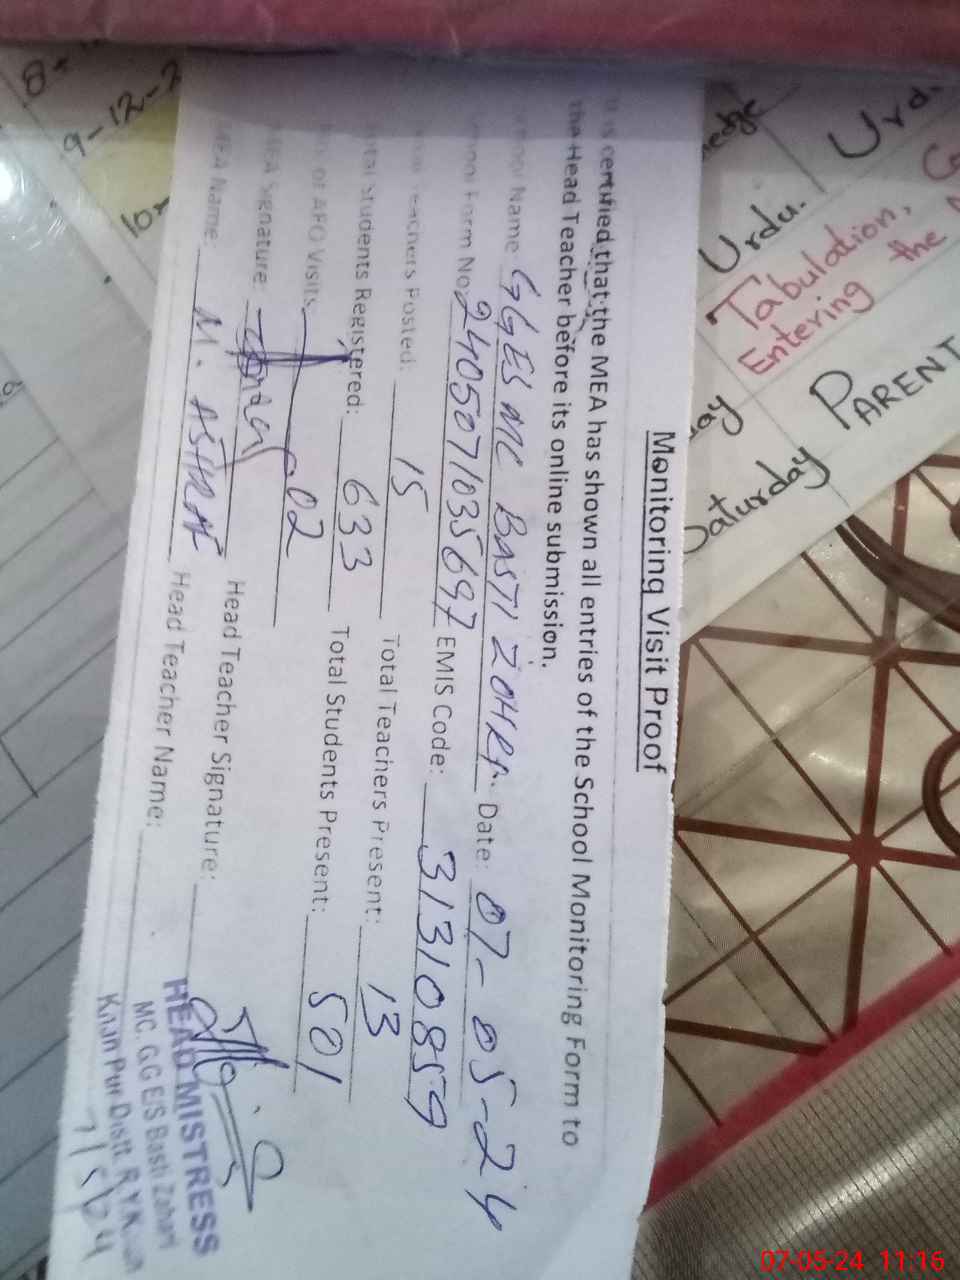 Monitoring Visit Proof
It is certified that the MEA has shown all entries of the School Monitoring Form to
the Head Teacher before its online submission.
School Name: GGES MC BASTI ZOHRA. Date: 07-05-24
Form No: 2405071035697 EMIS Code: 31310859
Teachers Posted: 15 Total Teachers Present: 13
Total Students Registered: 633 Total Students Present: 501
of AEO Visits: 02
MEA Signature: Head Teacher Signature:
MEA Name: M. ASHRAF Head Teacher Name:
HEAD MISTRESS
MC. G.G E/S Basti Zohari
Khan Pur Distt. R.Y.Khan
7/5/24
8-
9-12-2
10-
Urdu.
Tabulation,
Entering the
Saturday PARENT
07-05-24 11:16